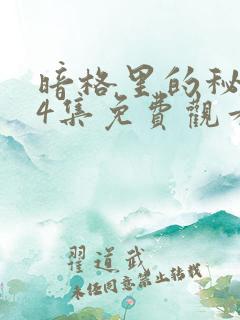 暗格里的秘
4集免費觀看
翟道武
未经同意禁止转载